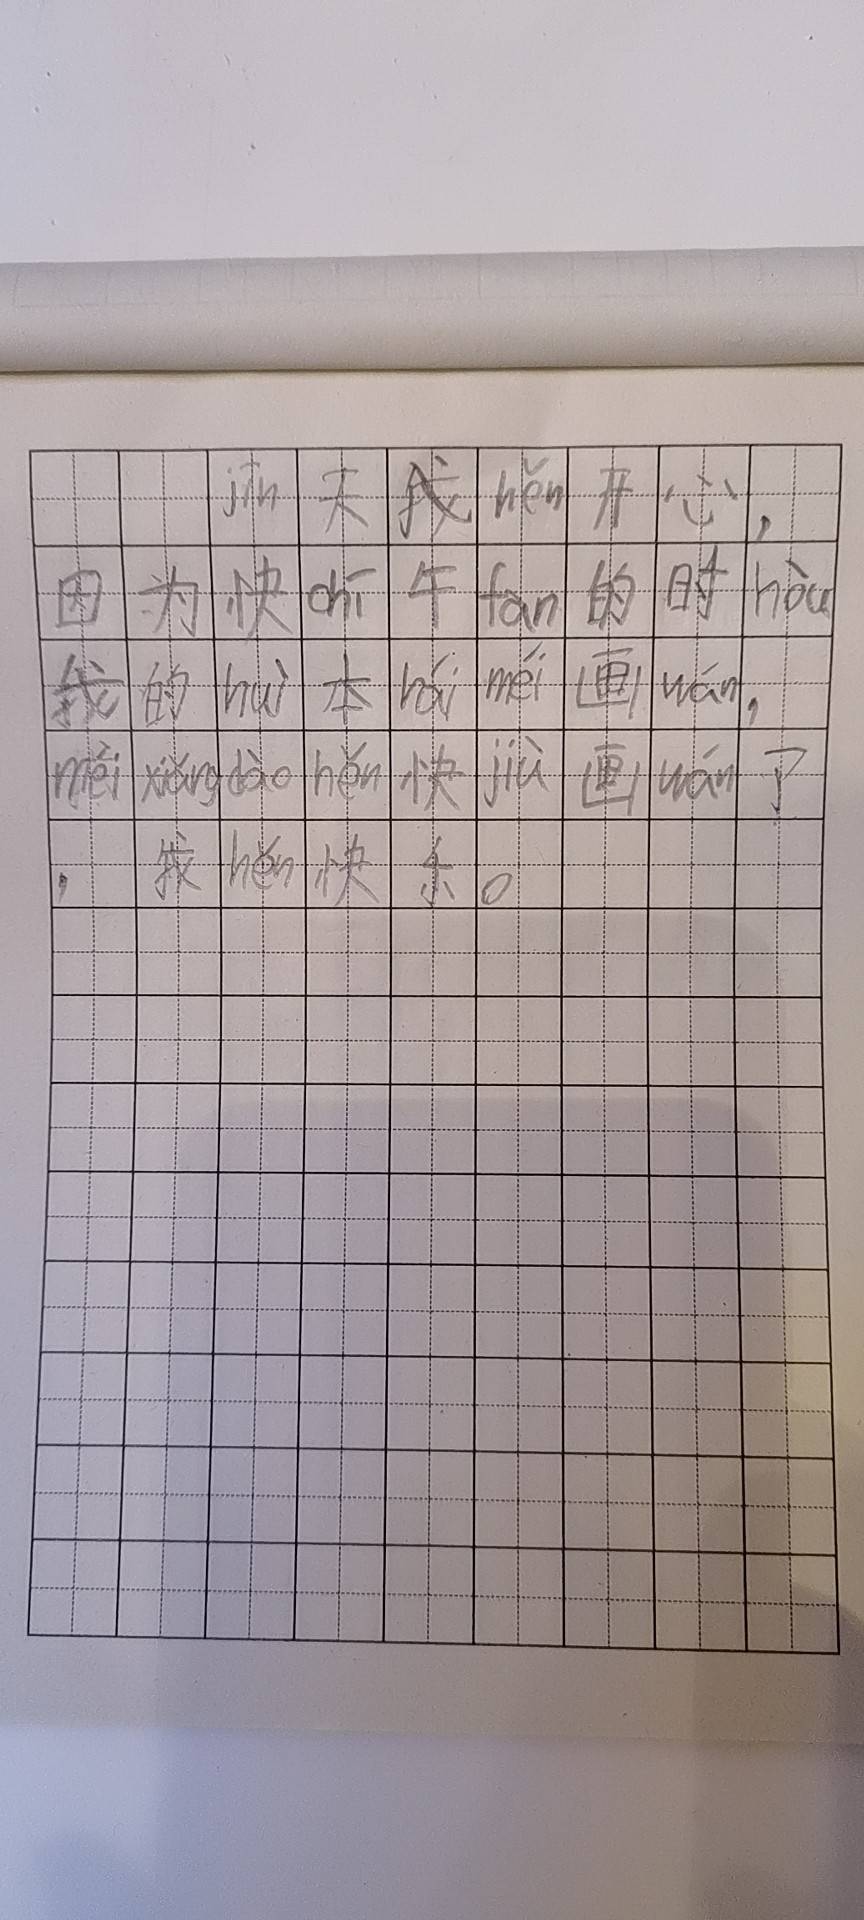 jīn天我hěn开心，
因为快chī午fàn的时hòu
我的huì本hái méi画wán，
méi xiǎng dào hěn快jiù画wán了
，我hěn快乐。